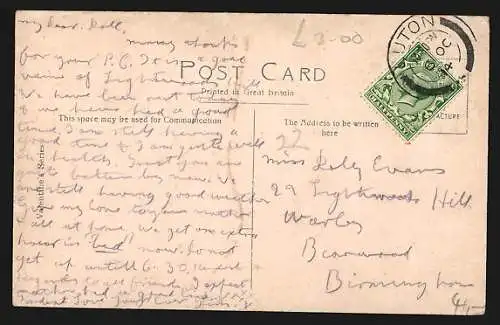 my dear Doll,
many thanks
for your P.C. It is a good
view of Lightwoods Hill
We have been out today
we have had a good
time, I am still having a
good time & I am quite well
in health. Trust you are
quite better by now. We
are still having good weather
Give my love to your mother
& all at home. We get an extra
hour in "bed" now. Do not
get up until 6.30. Kind
regards to all friends. I expect
POST CARD
Printed in Great Britain
This space may be used for Communication
The Address to be written
here
Valentine's Series
£3-00
UTON
OC
ACTURE
22
Miss Dolly Evans
29 Lightwoods Hill
Warley
Bearwood
Birmingham
4/-